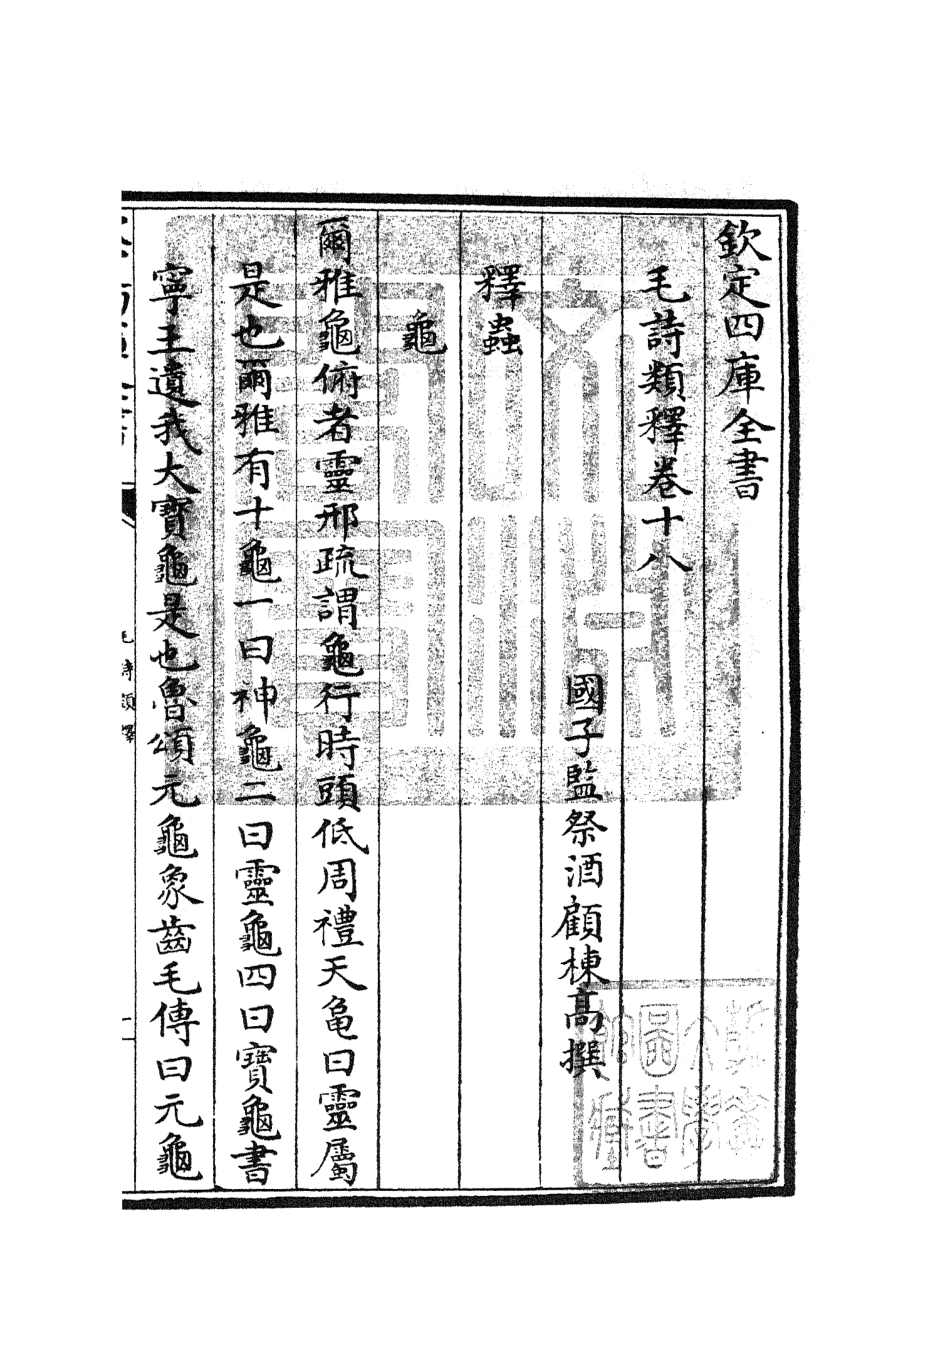 欽定四庫全書
毛詩類釋卷十八
國子監祭酒顧棟高撰
釋蟲
龜
爾雅龜俯者靈邢疏謂龜行時頭低周禮天龜曰靈屬
是也爾雅有十龜一曰神龜二曰靈龜四曰寶龜書
寧王遺我大寶龜是也魯頌元龜象齒毛傳曰元龜
毛詩類釋
一